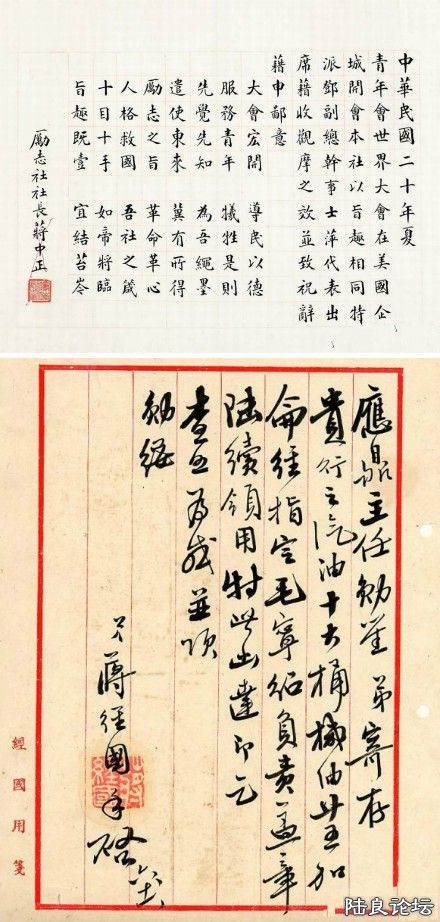 中華民國二十年夏
青年會世界大會在美國企
城開會本社以旨趣相同特
派鄧副總幹事士萍代表出
席藉收觀摩之效並致祝辭
藉申鄙意
大會宏開 導民以德
服務青年 犧牲是則
先覺先知 為吾繩墨
遣使東來 冀有所得
勵志之旨 革命革心
人格救國 吾社之箴
十目十手 如帝將臨
旨趣既壹 宜結苔岑
勵志社社長蔣中正
主任勛鑒 弟寄存
貴行之汽油十六桶機油廿五加
侖經指定毛寧紹負責蓋章
陸續領用特此函達即乞
查照為感並頌
勛綏
弟蔣經國手啟
經國用箋
陆良论坛